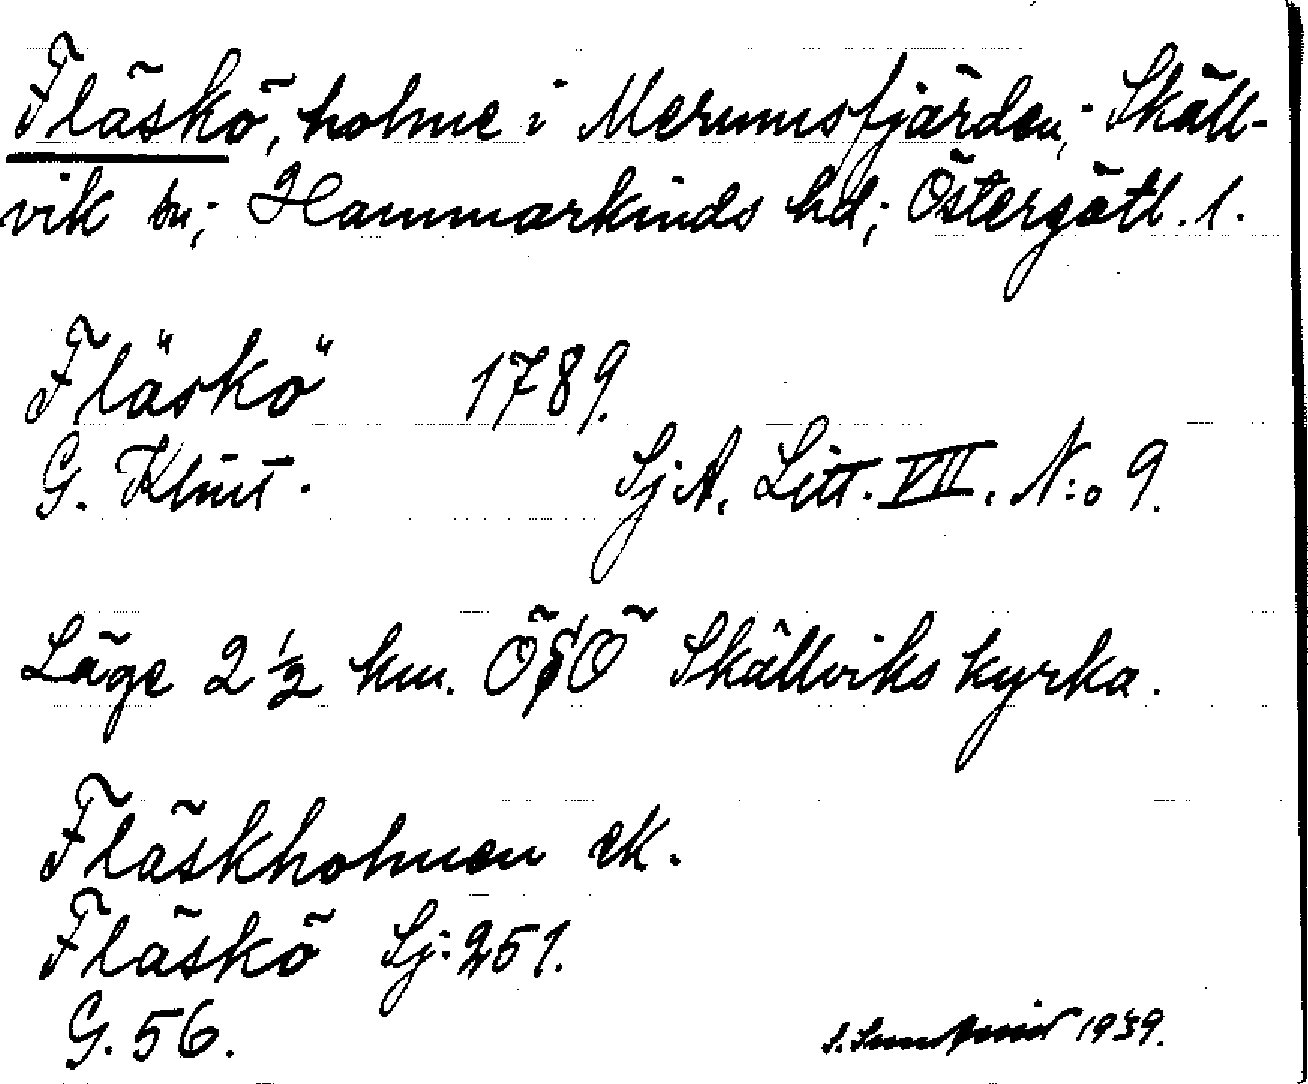 Fläskö, holme i Merumsfjärden; Skäll-
vik sn; Hammarkinds hd; Östergötl. l.
Fläskö 1789.
G. Klint. SjA. Litt. VII. N:o 9.
Läge 2 ½ km. ÖSÖ Skällviks kyrka.
Fläskholmen ek.
Fläskö Sj: 251.
G. 56.
1939.